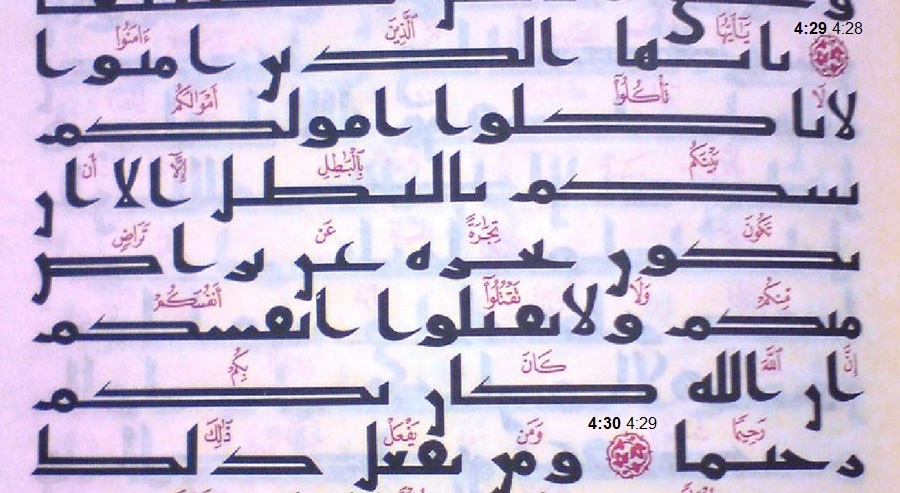 4:29 4:28
يَٰٓأَيُّهَا ٱلَّذِينَ ءَامَنُوا۟
يايها الذين امنوا
لَا تَأْكُلُوٓا۟ أَمْوَٰلَكُم
لا تاكلوا امولكم
بَيْنَكُم بِٱلْبَٰطِلِ إِلَّآ أَن
بينكم بالبطل الا ان
تَكُونَ تِجَٰرَةً عَن تَرَاضٍ
تكون تجره عن تراض
مِّنكُمْ وَلَا تَقْتُلُوٓا۟ أَنفُسَكُمْ
منكم ولا تقتلوا انفسكم
إِنَّ ٱللَّهَ كَانَ بِكُمْ
ان الله كان بكم
4:30 4:29
رَحِيمًا وَمَن يَفْعَلْ ذَٰلِكَ
رحيما ومن يفعل ذلك